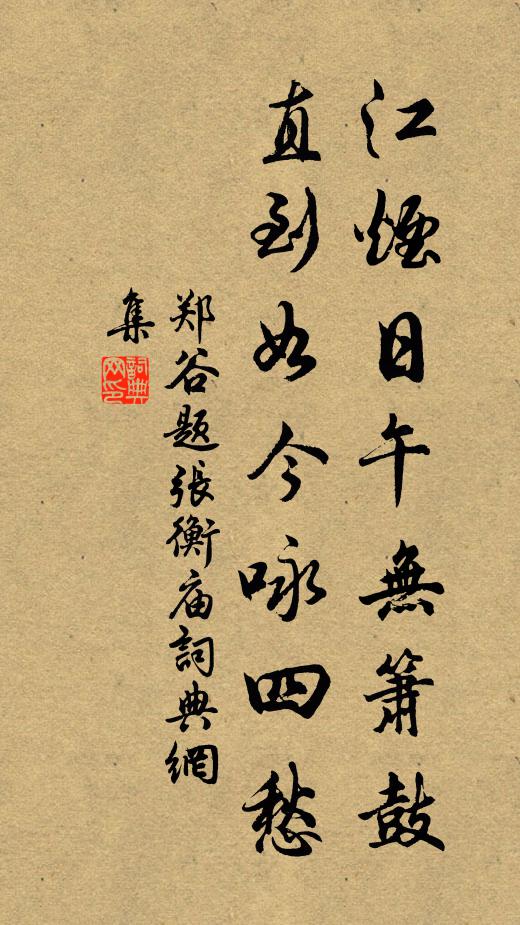 江煙日午無簫鼓
直到如今咏四愁
郑谷題張衡庙詞典網
集
詞典网印